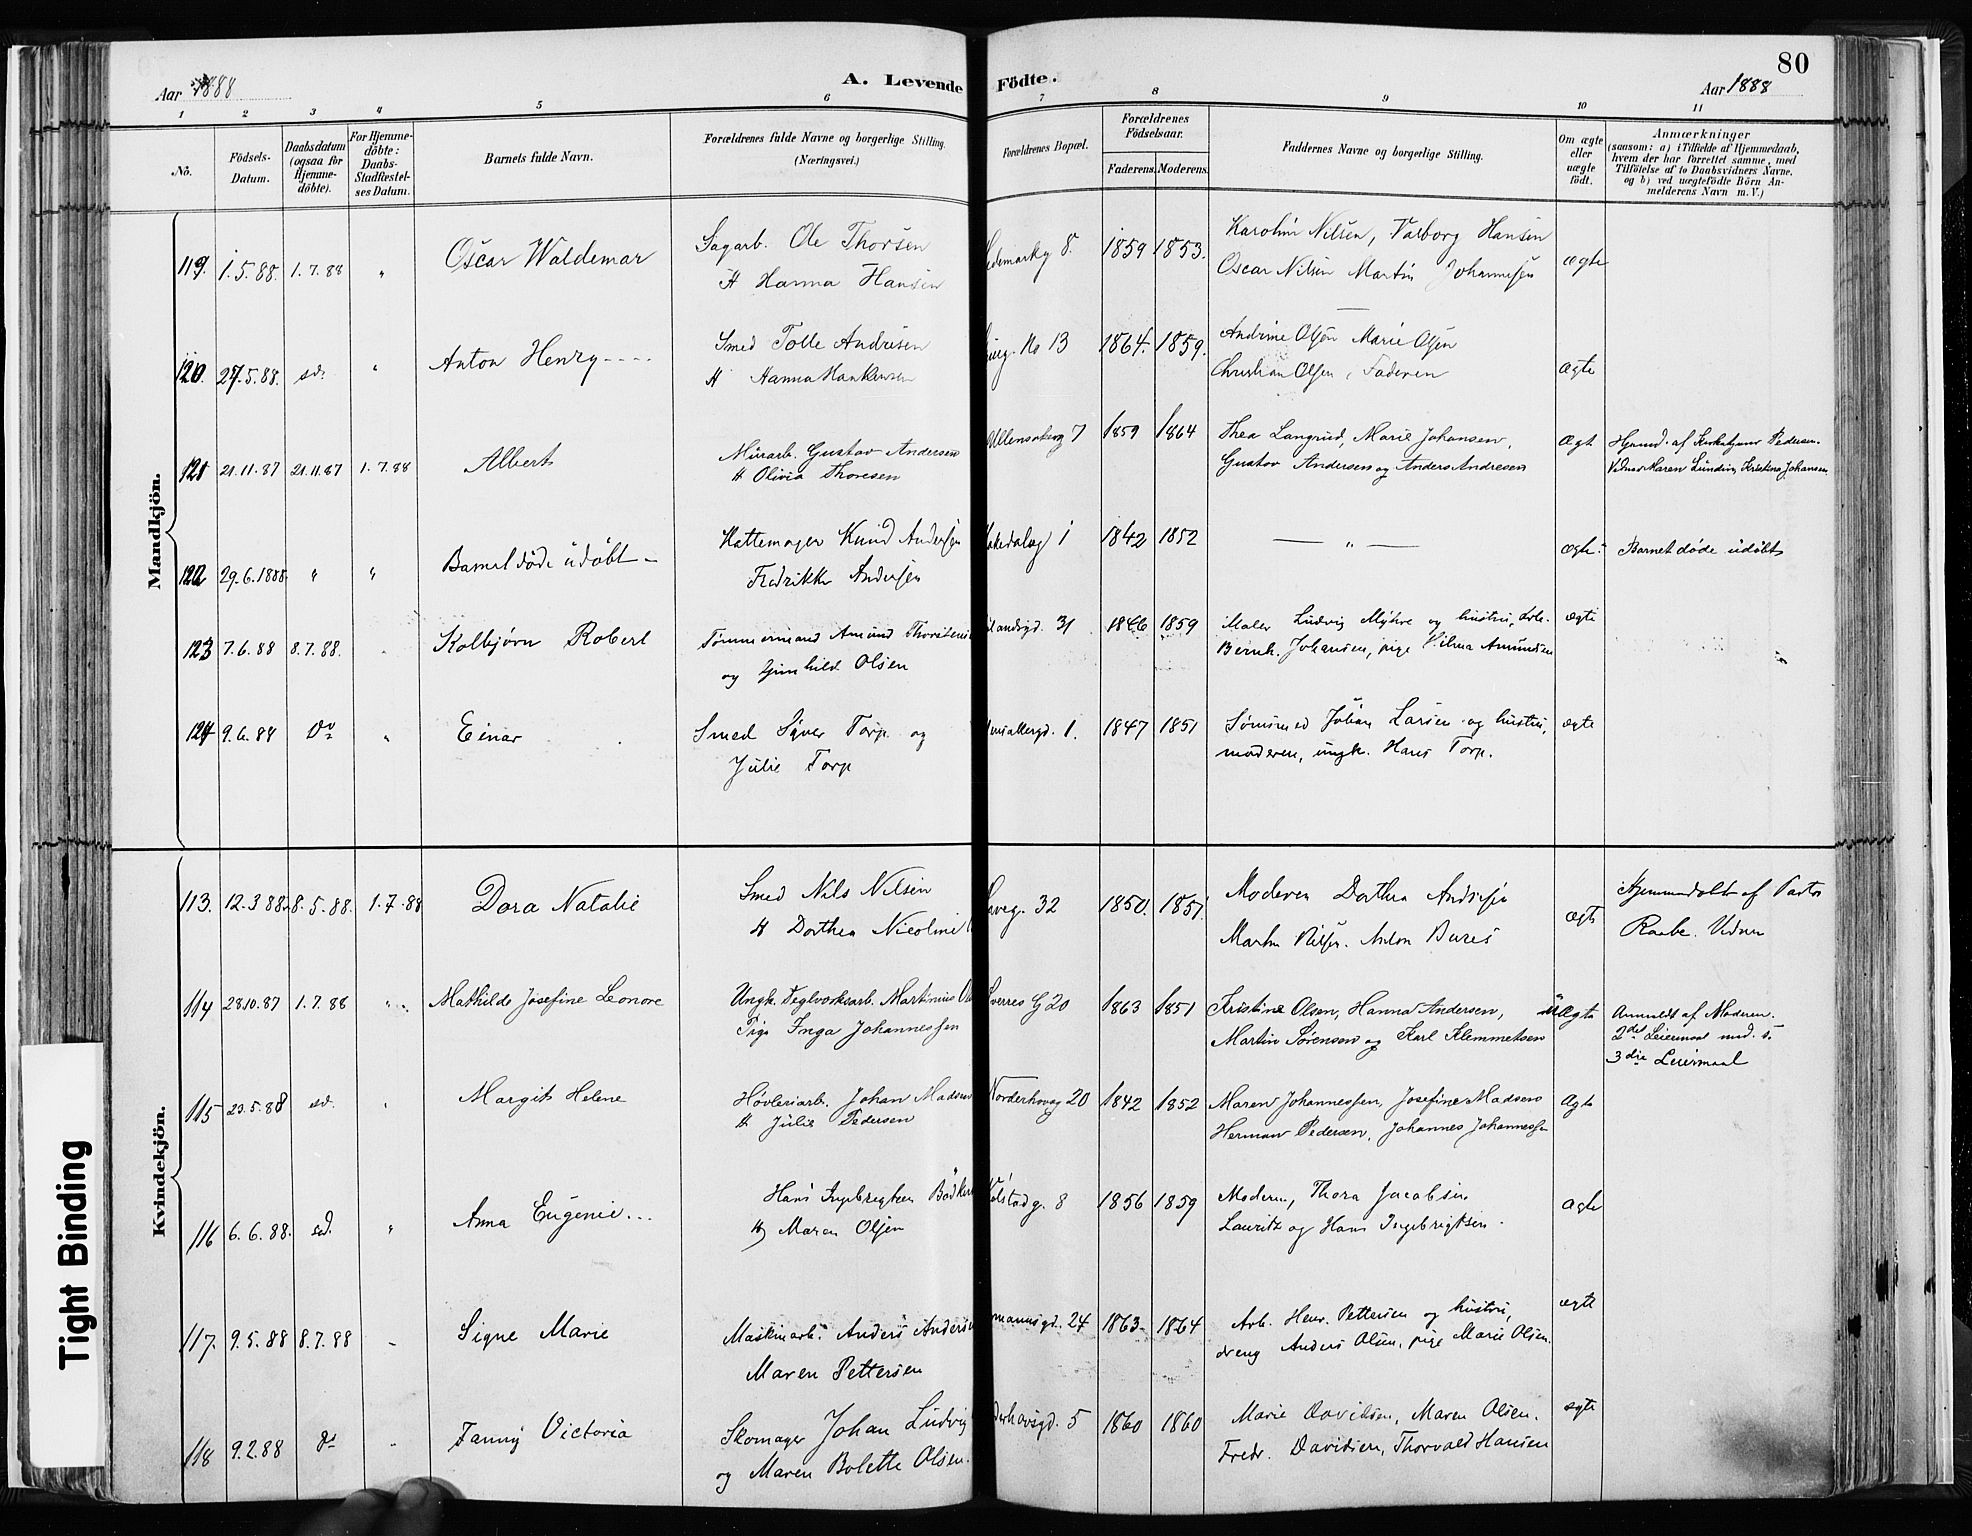 80
Aar 1888
A. Levende Födte.
Aar 1888
1 2 3 4 5 6 7 8 9 10 11
No.
Födsels-
Datum.
Daabsdatum
(ogsaa for
Hjemme-
döbte).
For Hjemme-
döbte:
Daabs-
Stadfæstel-
ses Datum.
Barnets fulde Navn.
Forældrenes fulde Navne og borgerlige Stilling.
(Næringsvei.)
Forældrenes Bopæl.
Forældrenes
Födselsaar.
Faderens. Moderens.
Faddernes Navne og borgerlige Stilling.
Om ægte
eller
uægte
födt.
Anmærkninger
(saasom: a) i Tilfælde af Hjemmedaab,
hvem der har forrettet samme, med
Tilföielse af to Daabsvidners Navne,
og b) ved uægtefödte Börn An-
melderens Navn m. V.)
Mandkjön.
119. 1.5.88. 1.7.88 " Oscar Waldemar
Sagarb. Ole Thorsen
H Hanna Hansen
8. 1859 1853.
Karolin Nilsen, Valborg Hansen
Oscar Nilsen Martin Johannesen
ægte
120. 27.5.88. sd. " Anton Henry
Smed Tolle Andresen
H Hanna
No 13 1864. 1859.
Andrine Olsen Marie Olsen
Christian Olsen, Faderen
ægte
121 21.11.87 21.11.87 1.7.88 Albert
Murarb. Gustav Andersen
H Olivia Thoresen
Ullensakerg 7 1859 1864
Thea Langrud, Marie Johansen,
Gustav Andersen og Anders Andresen
Ægt
Hjemd. af Kirketjener Pedersen.
Vidner Maren Lundin, Kristine Johansen.
122 29.6.1888 " " Barnet döde udöbt
Hattemager Knud Andersen
Fredrikke Andersen
1 1842 1852
— " —
ægte.
Barnet döde udöbt
123 7.6.88 8.7.88. Kolbjørn Robert
Tømmermand Amund Thorstens
og Gunhild Olsen
31 1846 1859
Maler Ludvig Myhre og hustru, Arb.
Bernh. Johansen, pige Vilma Amundsen
ægte
124 9.6.88 Do " Einar
Smed Syver Torp og
Julie Torp
1. 1847 1851
Johan Larsen og hustru,
moderen, ungk. Hans Torp.
ægte
Kvindekjön.
113. 12.3.88. 8.5.88. 1.7.88 Dora Natalie
Smed Nils Nilsen
H Dorthea Nicoline
32 1850. 1851.
Moderen Dorthea Andresen
Martin Nilsen. Anton Bures
ægt
Hjemmedöbt af Pastor
Raabe. Vidner
114 28.10.87 1.7.88 " Mathilde Josefine Leonore
Ungk. Teglverksarb. Martinius Ol
Pige Inga Johannessen
Sverres G 20 1863 1851
Kristine Olsen, Hanna Andersen,
Martin Sørensen og Karl Klemmetsen
uægte
Anmeldt af Moderen.
2det Leiermaal med s.
3die Leiermaal
115 23.5.88 sd. Margit Helene
Høvleriarb. Johan Madsen
H Julie Pedersen
Norderhovsg 20 1842 1852
Maren Johannessen, Josefine Madsen
Herman Pedersen, Johannes Johannessen
Ægte
116 6.6.88. sd. " Anna Eugenie
Hans Ingebrigtsen Bödker
H Maren Olsen
8 1856 1859
Moderen, Thora Jacobsen
Lauritz og Hans Ingebrigtsen.
ægte
117. 9.5.88 8.7.88 Signe Marie
Maskinarb. Anders Andersen
Maren Pettersen
24 1863 1864
Arb. Henr. Pettersen og hustru,
dreng Anders Olsen, pige Marie Olsen.
ægte
118 9.2.88 do Fanny Victoria
Skomager Johan Ludvig
og Maren Bolette Olsen.
5 1860 1860
Marie Davidsen, Maren Olsen.
Fredr. Davidsen, Thorvald Hansen
ægte
Tight Binding